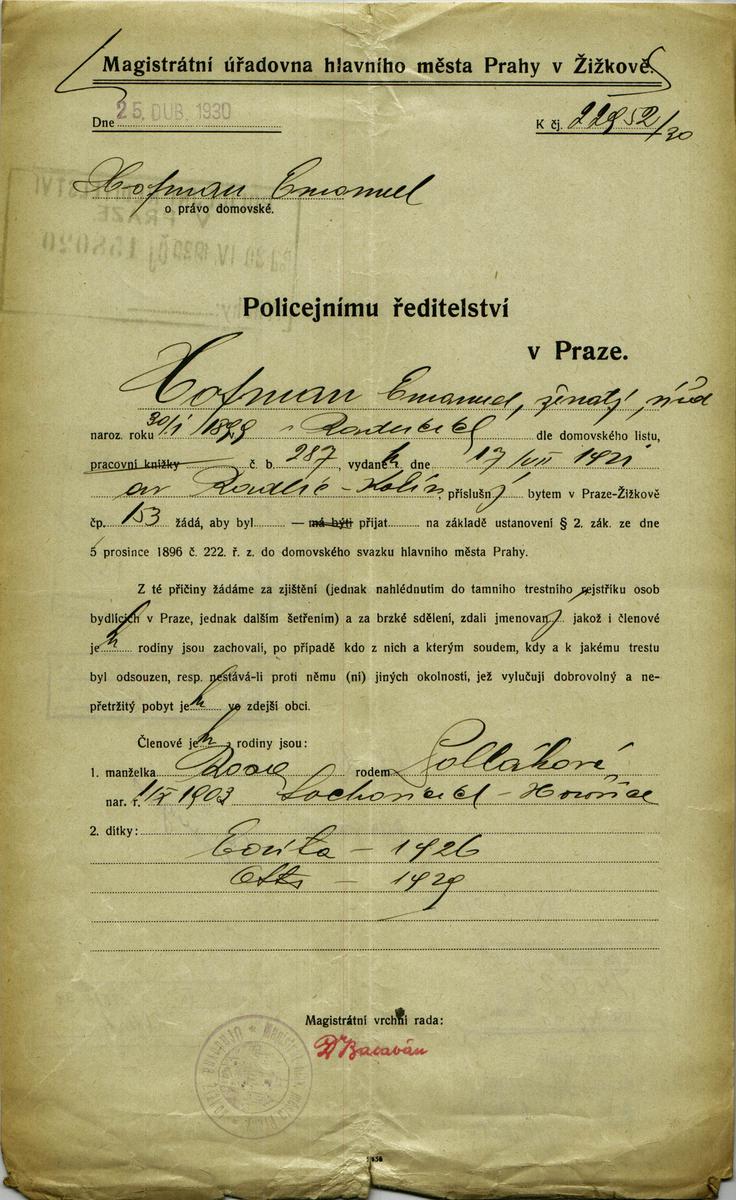 Magistrátní úřadovna hlavního města Prahy v Žižkově.
Dne 25. DUB. 1930
K čj. 22952/30
Hofman Emanuel
o právo domovské.
Policejnímu ředitelství
v Praze.
Hofman Emanuel, ženatý,
naroz. roku 30/I 1899 v dle domovského listu,
pracovní knížky č. b. 287, vydané h dne 17/VII 1921
příslušný bytem v Praze-Žižkově
čp. 153 žádá, aby byl — má býti přijat na základě ustanovení § 2. zák. ze dne
5 prosince 1896 č. 222. ř. z. do domovského svazku hlavního města Prahy.
Z té příčiny žádáme za zjištění (jednak nahlédnutím do tamního trestního rejstříku osob
bydlících v Praze, jednak dalším šetřením) a za brzké sdělení, zdali jmenovaný jakož i členové
jeh rodiny jsou zachovalí, po případě kdo z nich a kterým soudem, kdy a k jakému trestu
byl odsouzen, resp. nestává-li proti němu (ní) jiných okolností, jež vylučují dobrovolný a ne-
přetržitý pobyt jeh ve zdejší obci.
Členové jeh rodiny jsou:
1. manželka rodem Polláková
nar. r. 1/IX 1903
2. dítky:
Edita — 1926
Otto — 1929
Magistrátní vrchní rada: